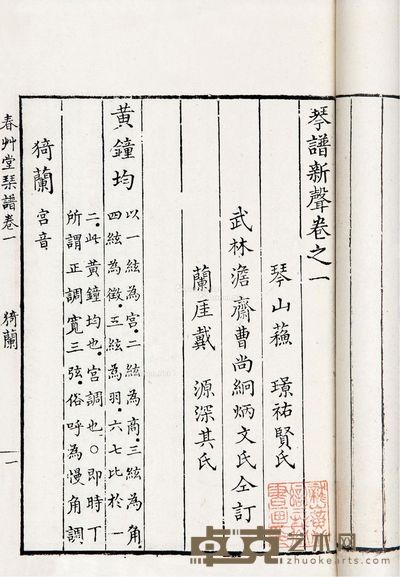 琴譜新聲卷之一
琴山蘓 璟祐賢氏
武林澹齋曹尚絅炳文氏仝訂
蘭厓戴 源深其氏
黃鐘均
以一絃為宮二絃為商三絃為角
四絃為徵五絃為羽六七比於一
二此黃鐘均也宮調也○即時丁
所謂正調寬三弦俗呼為慢角調
猗蘭 宮音
春艸堂琴譜卷一 猗蘭 一
卓克艺术网
www.zhuokearts.com